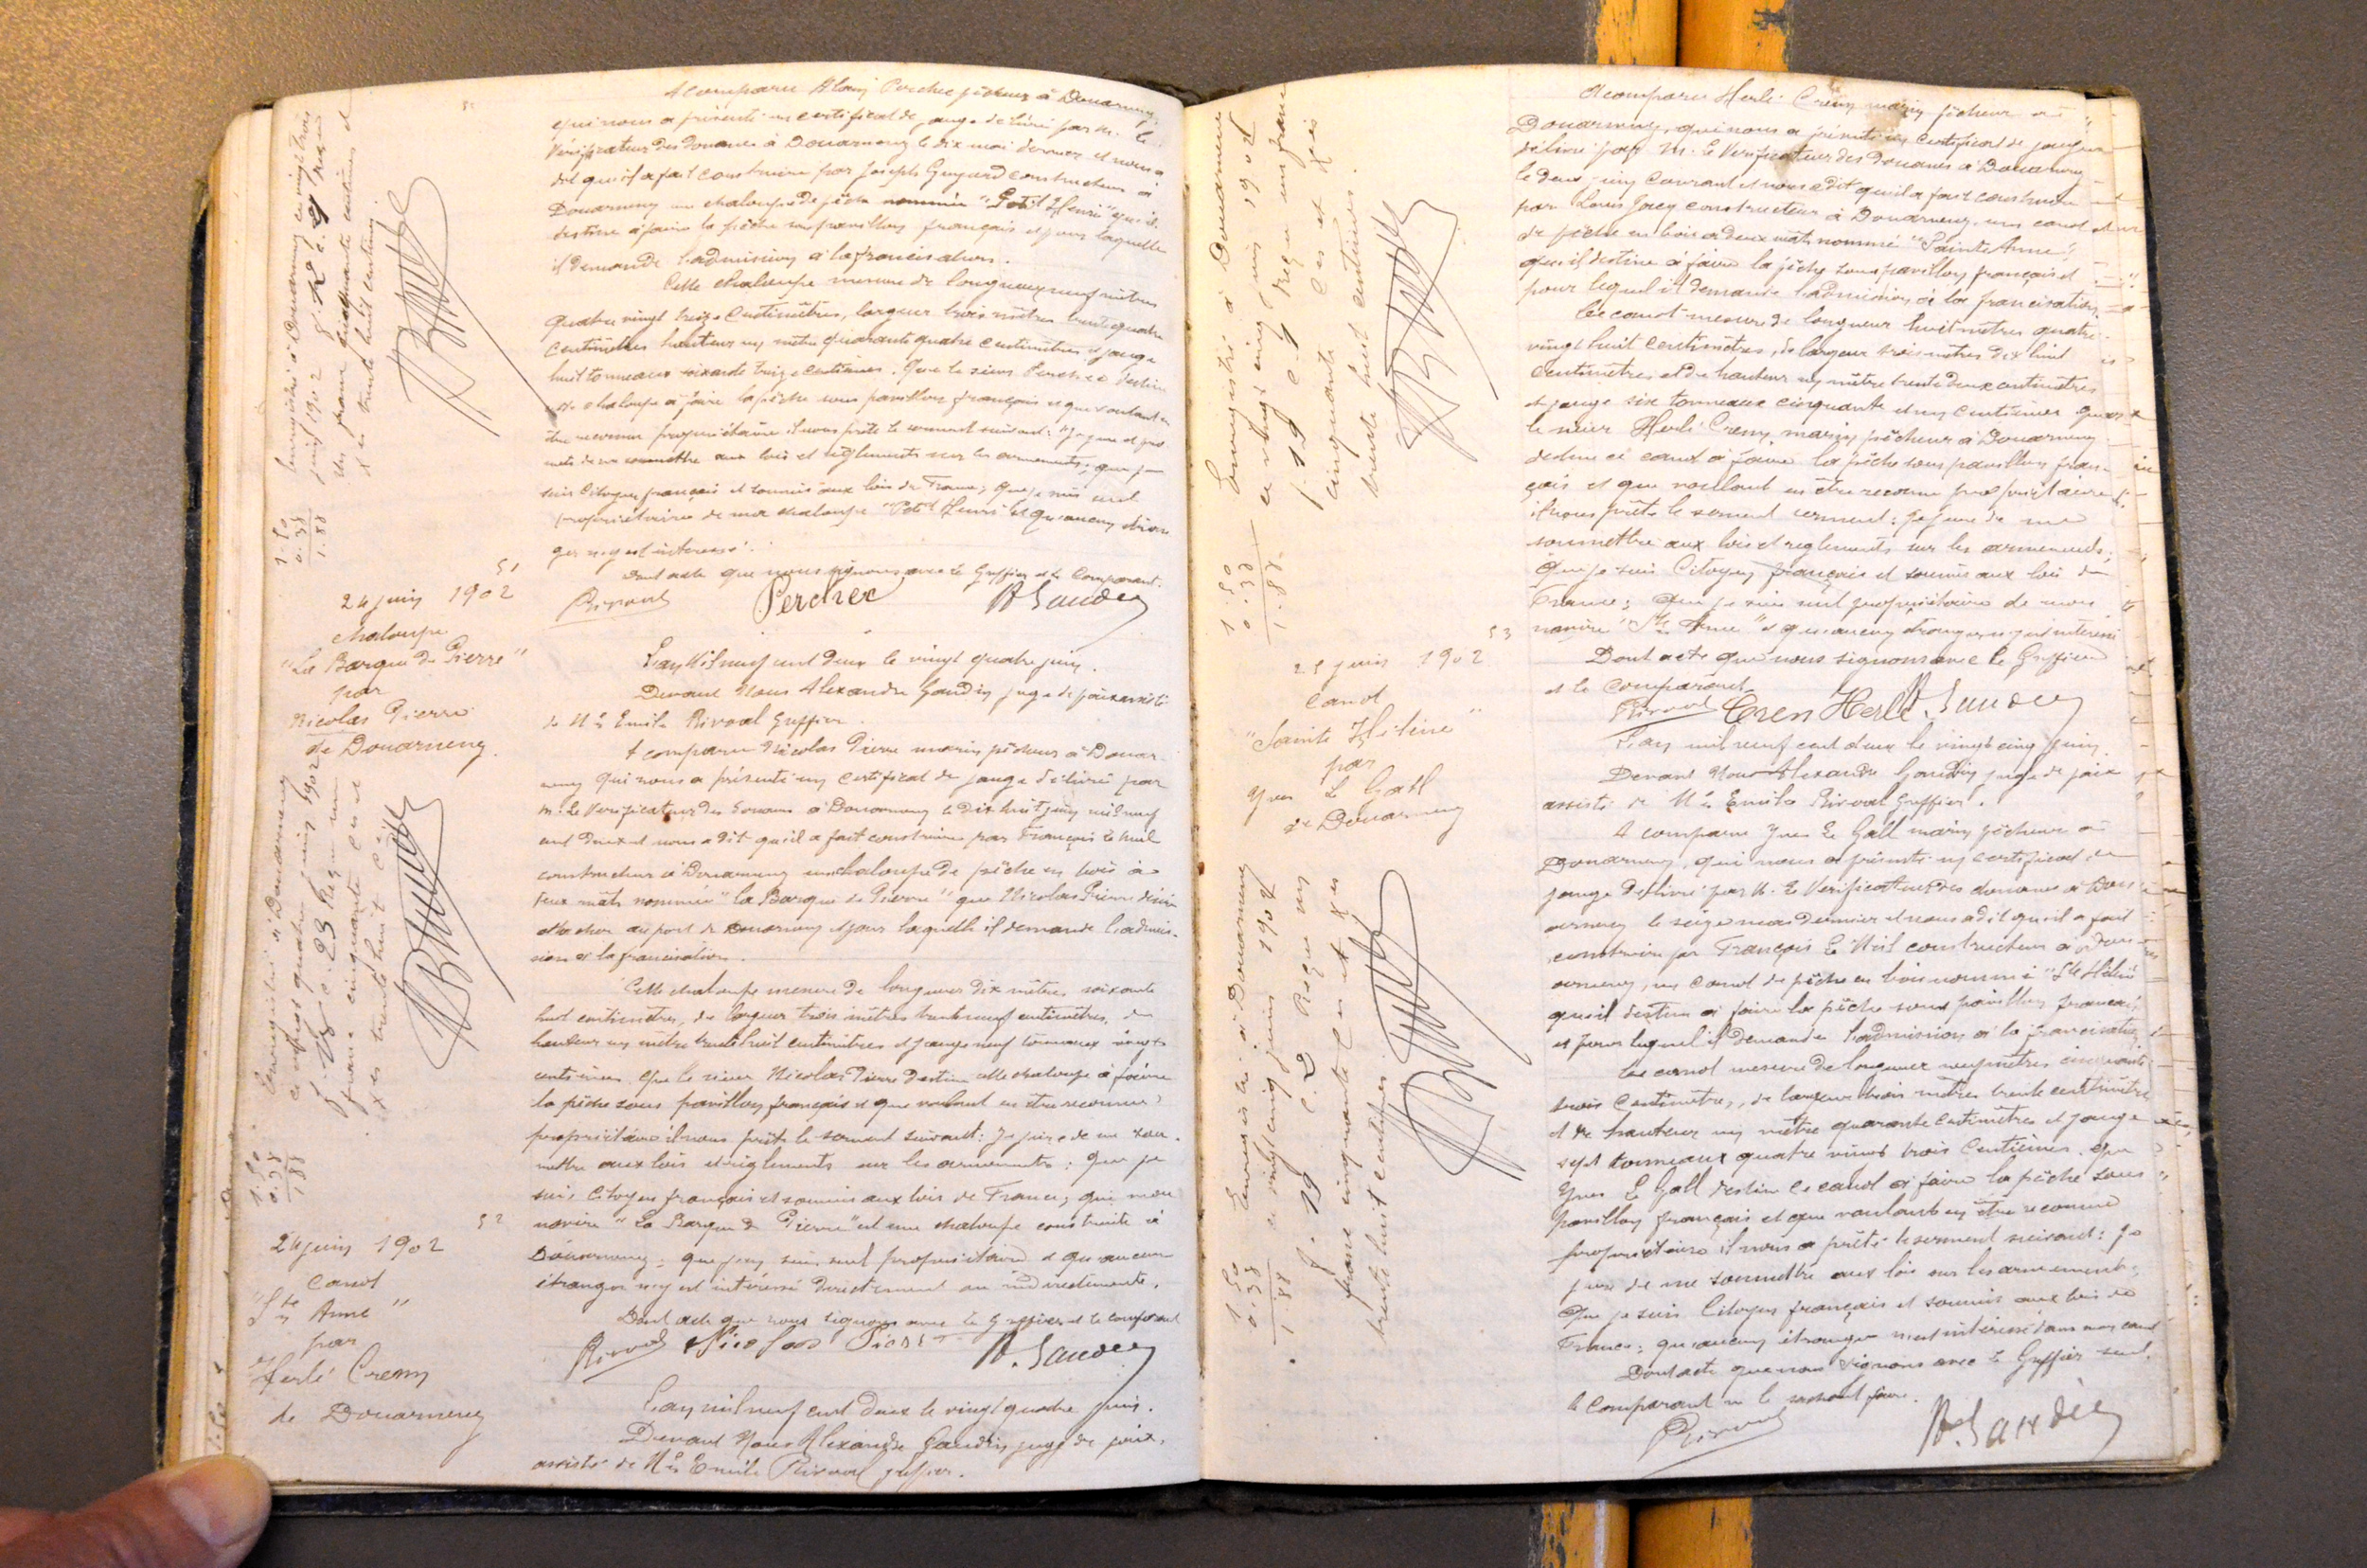 A comparu Alain Perchec pêcheur à Douarnenez
qui nous a présenté un certificat de jauge délivré par M. le
Vérificateur des douanes à Douarnenez le dix mai dernier et nous a
dit qu'il a fait construire par Joseph Guyard constructeur à
Douarnenez une chaloupe de pêche nommée "Petit Henri" qu'il
destine à faire la pêche sous pavillon français et pour laquelle
il demande l'admission à la francisation.
Cette chaloupe mesure de longueur neuf mètres
quatre vingt treize centimètres, largeur trois mètres trente quatre
centimètres hauteur un mètre quarante quatre centimètres et jauge
huit tonneaux soixante treize centièmes. Que le sieur Perchec destine
cette chaloupe à faire la pêche sous pavillon français et que voulant en
être reconnu propriétaire il nous prête le serment suivant: "Je jure et pro
mets de me soumettre aux lois et règlements sur les armements; que je
suis Citoyen français et soumis aux lois de France; que je suis seul
propriétaire de ma chaloupe "Petit Henri" et qu'aucun étran
ger n'y est intéressé.
Dont acte que nous signons avec le Greffier et le Comparant.
Rivoal Perchec A Gaudin
Enregistré à Douarnenez le vingt trois
juin 1902 Reçu
un franc cinquante centimes et
Xes trente huit centimes.
1.50
0.38
1.88
51
24 juin 1902
chaloupe
"La Barque de Pierre"
par
Nicolas Pierre
de Douarnenez.
L'an Mil neuf cent deux le vingt quatre juin.
Devant Nous Alexandre Gaudin juge de paix assisté
de Me Emile Rivoal Greffier.
A comparu Nicolas Pierre marin pêcheur à Douar-
nenez qui nous a présenté un certificat de jauge délivré par
M. le Vérificateur des Douanes à Douarnenez le dix huit juin mil neuf
cent deux et nous a dit qu'il a fait construire par François le
constructeur à Douarnenez une chaloupe de pêche en bois à
deux mâts nommée "la Barque de Pierre" que Nicolas Pierre désire
attacher au port de Douarnenez et pour laquelle il demande l'admis-
sion à la francisation.
Cette chaloupe mesure de longueur dix mètres soixante
huit centimètres, de largeur trois mètres trente neuf centimètres, de
hauteur un mètre trente huit centimètres et jauge neuf tonneaux vingt
centièmes. Que le sieur Nicolas Pierre destine cette chaloupe à faire
la pêche sous pavillon français et que voulant en être reconnu
propriétaire il nous prête le serment suivant: Je jure de me sou-
mettre aux lois et règlements sur les armements: Que je
suis Citoyen français et soumis aux lois de France; que mon
navire "La Barque de Pierre" est une chaloupe construite à
Douarnenez; que j'en suis seul propriétaire et qu'aucun
étranger n'y est intéressé directement ou indirectement.
Dont acte que nous signons avec le Greffier et le comparant
Rivoal Nicolas Pierre A. Gaudin
Enregistré à Douarnenez
ce vingt quatre juin 1902
Reçu un
franc cinquante Ces et
Xes trente huit Ces.
1.50
0.38
1.88
52
24 juin 1902
Canot
"Ste Anne"
par
Herlé Crenn
de Douarnenez
L'an mil neuf cent deux le vingt quatre juin.
Devant Nous Alexandre Gaudin juge de paix,
assisté de Me Emile Rivoal greffier.
A comparu Herlé Crenn marin pêcheur à
Douarnenez, qui nous a présenté un certificat de jauge
délivré par M. le Vérificateur des Douanes à Douarnenez
le deux juin courant et nous a dit qu'il a fait construire
par Louis Jacq constructeur à Douarnenez un canot
de pêche en bois à deux mâts nommé "Sainte Anne",
qu'il destine à faire la pêche sous pavillon français et
pour lequel il demande l'admission à la francisation.
Ce canot mesure de longueur huit mètres quatre-
vingt huit centimètres, de largeur trois mètres dix huit
centimètres et de hauteur un mètre trente deux centimètres
et jauge six tonneaux cinquante et un centièmes. Que
le sieur Herlé Crenn, marin pêcheur à Douarnenez
destine ce canot à faire la pêche sous pavillon fran-
çais et que voulant en être reconnu propriétaire
il nous prête le serment suivant: Je jure de me
soumettre aux lois et règlements sur les armements;
Que je suis Citoyen français et soumis aux lois de
France; Que je suis seul propriétaire de mon
navire "Ste Anne" et qu'aucun étranger n'y est intéressé
Dont acte que nous signons avec le Greffier
et le comparant.
Rivoal Cren Herlé A. Gaudin
Enregistré à Douarnenez
ce vingt cinq juin 1902
Reçu un franc
cinquante Ces et Xes
trente huit centimes.
1.50
0.38
1.88
53
25 juin 1902
Canot
"Sainte Hélène"
par
Yves Le Gall
de Douarnenez
L'an mil neuf cent deux le vingt cinq juin
Devant Nous Alexandre Gaudin juge de paix
assisté de Me Emile Rivoal Greffier.
A comparu Yves Le Gall marin pêcheur à
Douarnenez, qui nous a présenté un certificat de
jauge délivré par M. le Vérificateur des douanes à Dou-
arnenez le seize mai dernier et nous a dit qu'il a fait
construire par François Le constructeur à Dou-
arnenez, un canot de pêche en bois nommé "Ste Hélène"
qu'il destine à faire la pêche sous pavillon français
et pour lequel il demande l'admission à la francisation
Ce canot mesure de longueur neuf mètres cinquante
trois centimètres, de largeur trois mètres trente centimètres
et de hauteur un mètre quarante centimètres et jauge
sept tonneaux quatre vingt trois centièmes. Que
Yves Le Gall destine ce canot à faire la pêche sous
pavillon français et que voulant en être reconnu
propriétaire il nous a prêté le serment suivant: Je
jure de me soumettre aux lois sur les armements;
Que je suis Citoyen français et soumis aux lois de
France; qu'aucun étranger n'est intéressé dans mon canot
Dont acte que nous signons avec le Greffier seul,
le Comparant ne le sachant faire.
Rivoal A. Gaudin
Enregistré à Douarnenez
ce vingt cinq juin 1902
Reçu un
franc cinquante Ces et Xes
trente huit centimes
1.50
0.38
1.88